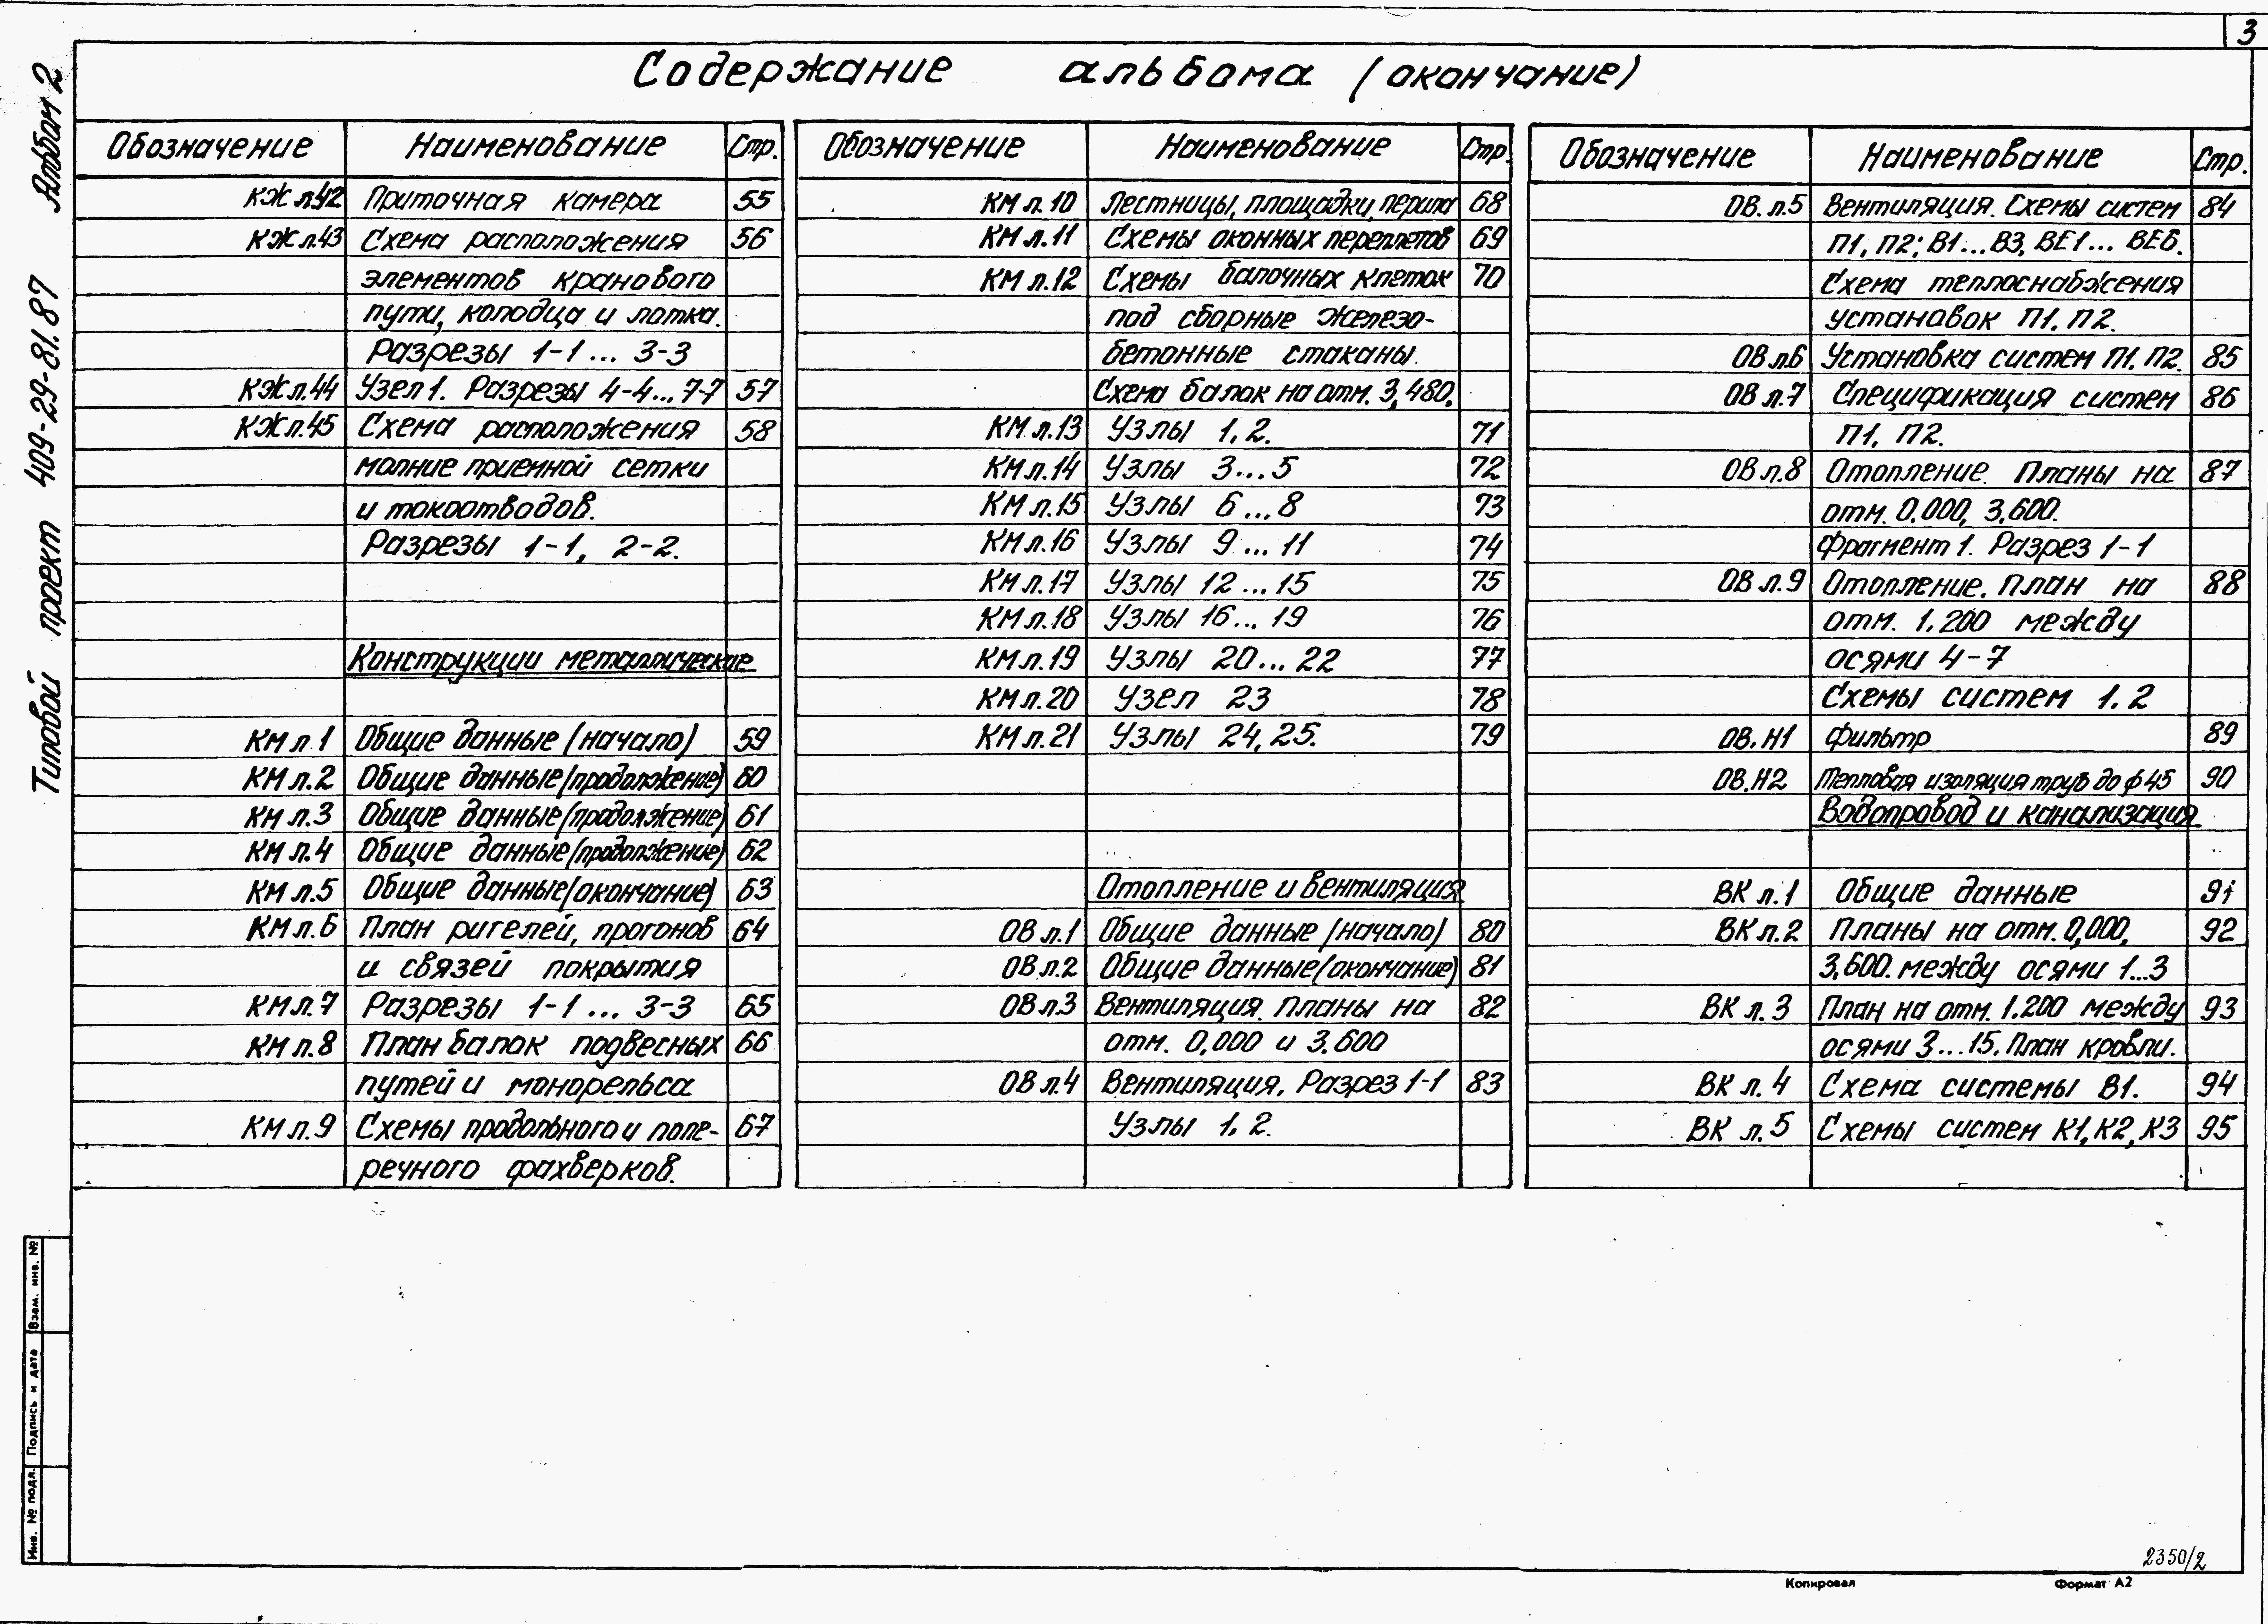 3
Содержание альбома (окончание)
Альбом 2
Типовой проект 409-29-81.87
Обозначение Наименование Стр.
КЖ л.42 Приточная камера 55
КЖ л.43 Схема расположения 56
элементов кранового
пути, колодца и лотка.
Разрезы 1-1... 3-3
КЖ л.44 Узел 1. Разрезы 4-4...7-7 57
КЖ л.45 Схема расположения 58
молние приемной сетки
и токоотводов.
Разрезы 1-1, 2-2.
Конструкции металлические
КМ л.1 Общие данные (начало) 59
КМ л.2 Общие данные (продолжение) 60
КМ л.3 Общие данные (продолжение) 61
КМ л.4 Общие данные (продолжение) 62
КМ л.5 Общие данные (окончание) 63
КМ л.6 План ригелей, прогонов 64
и связей покрытия
КМ л.7 Разрезы 1-1 ... 3-3 65
КМ л.8 План балок подвесных 66
путей и монорельса
КМ л.9 Схемы продольного и попе- 67
речного фахверков.
Обозначение Наименование Стр.
КМ л.10 Лестницы, площадки, перила 68
КМ л.11 Схемы оконных переплетов 69
КМ л.12 Схемы балочных клеток 70
под сборные железо-
бетонные стаканы.
Схема балок на отм. 3,480.
КМ л.13 Узлы 1, 2. 71
КМ л.14 Узлы 3...5 72
КМ л.15 Узлы 6...8 73
КМ л.16 Узлы 9...11 74
КМ л.17 Узлы 12...15 75
КМ л.18 Узлы 16...19 76
КМ л.19 Узлы 20...22 77
КМ л.20 Узел 23 78
КМ л.21 Узлы 24, 25. 79
Отопление и вентиляция
ОВ л.1 Общие данные (начало) 80
ОВ л.2 Общие данные (окончание) 81
ОВ л.3 Вентиляция. Планы на 82
отм. 0,000 и 3.600
ОВ л.4 Вентиляция. Разрез 1-1 83
Узлы 1, 2.
Обозначение Наименование Стр.
ОВ. л.5 Вентиляция. Схемы систем 84
П1, П2; В1...В3, ВЕ1... ВЕ6.
Схема теплоснабжения
установок П1, П2.
ОВ л.6 Установка систем П1, П2. 85
ОВ л.7 Спецификация систем 86
П1, П2.
ОВ л.8 Отопление. Планы на 87
отм. 0,000, 3,600.
Фрагмент 1. Разрез 1-1
ОВ л.9 Отопление. План на 88
отм. 1.200 между
осями 4-7
Схемы систем 1, 2
ОВ.Н1 Фильтр 89
ОВ.Н2 Тепловая изоляция труб до ф 45 90
Водопровод и канализация
ВК л.1 Общие данные 91
ВК л.2 Планы на отм. 0,000, 92
3,600. между осями 1...3
ВК л. 3 План на отм. 1.200 между 93
осями 3...15. План кровли.
ВК л. 4 Схема системы В1. 94
ВК л. 5 Схемы систем К1, К2, К3 95
Инв. № подл. Подпись и дата Взам. инв. №
2350/2
Копировал Формат А2